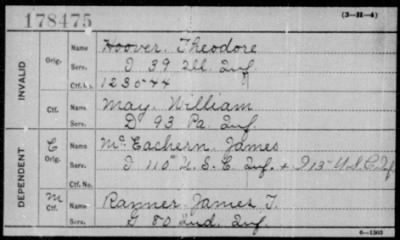 178475
(3—11—4)
INVALID
Orig.
Name Hoover, Theodore
Serv. I 39 Ill. Inf.
Ctf. No. 123544
Ctf.
Name May, William
Serv. D 93 Pa. Inf.
DEPENDENT
C
Orig.
Name McEachern, James
Serv. I 110" U.S.C. Inf. + I 13" U.S.C. Inf
Ctf. No.
M
Ctf.
Name Ranner, James T.
Serv. G 80 Ind. Inf.
6—1303